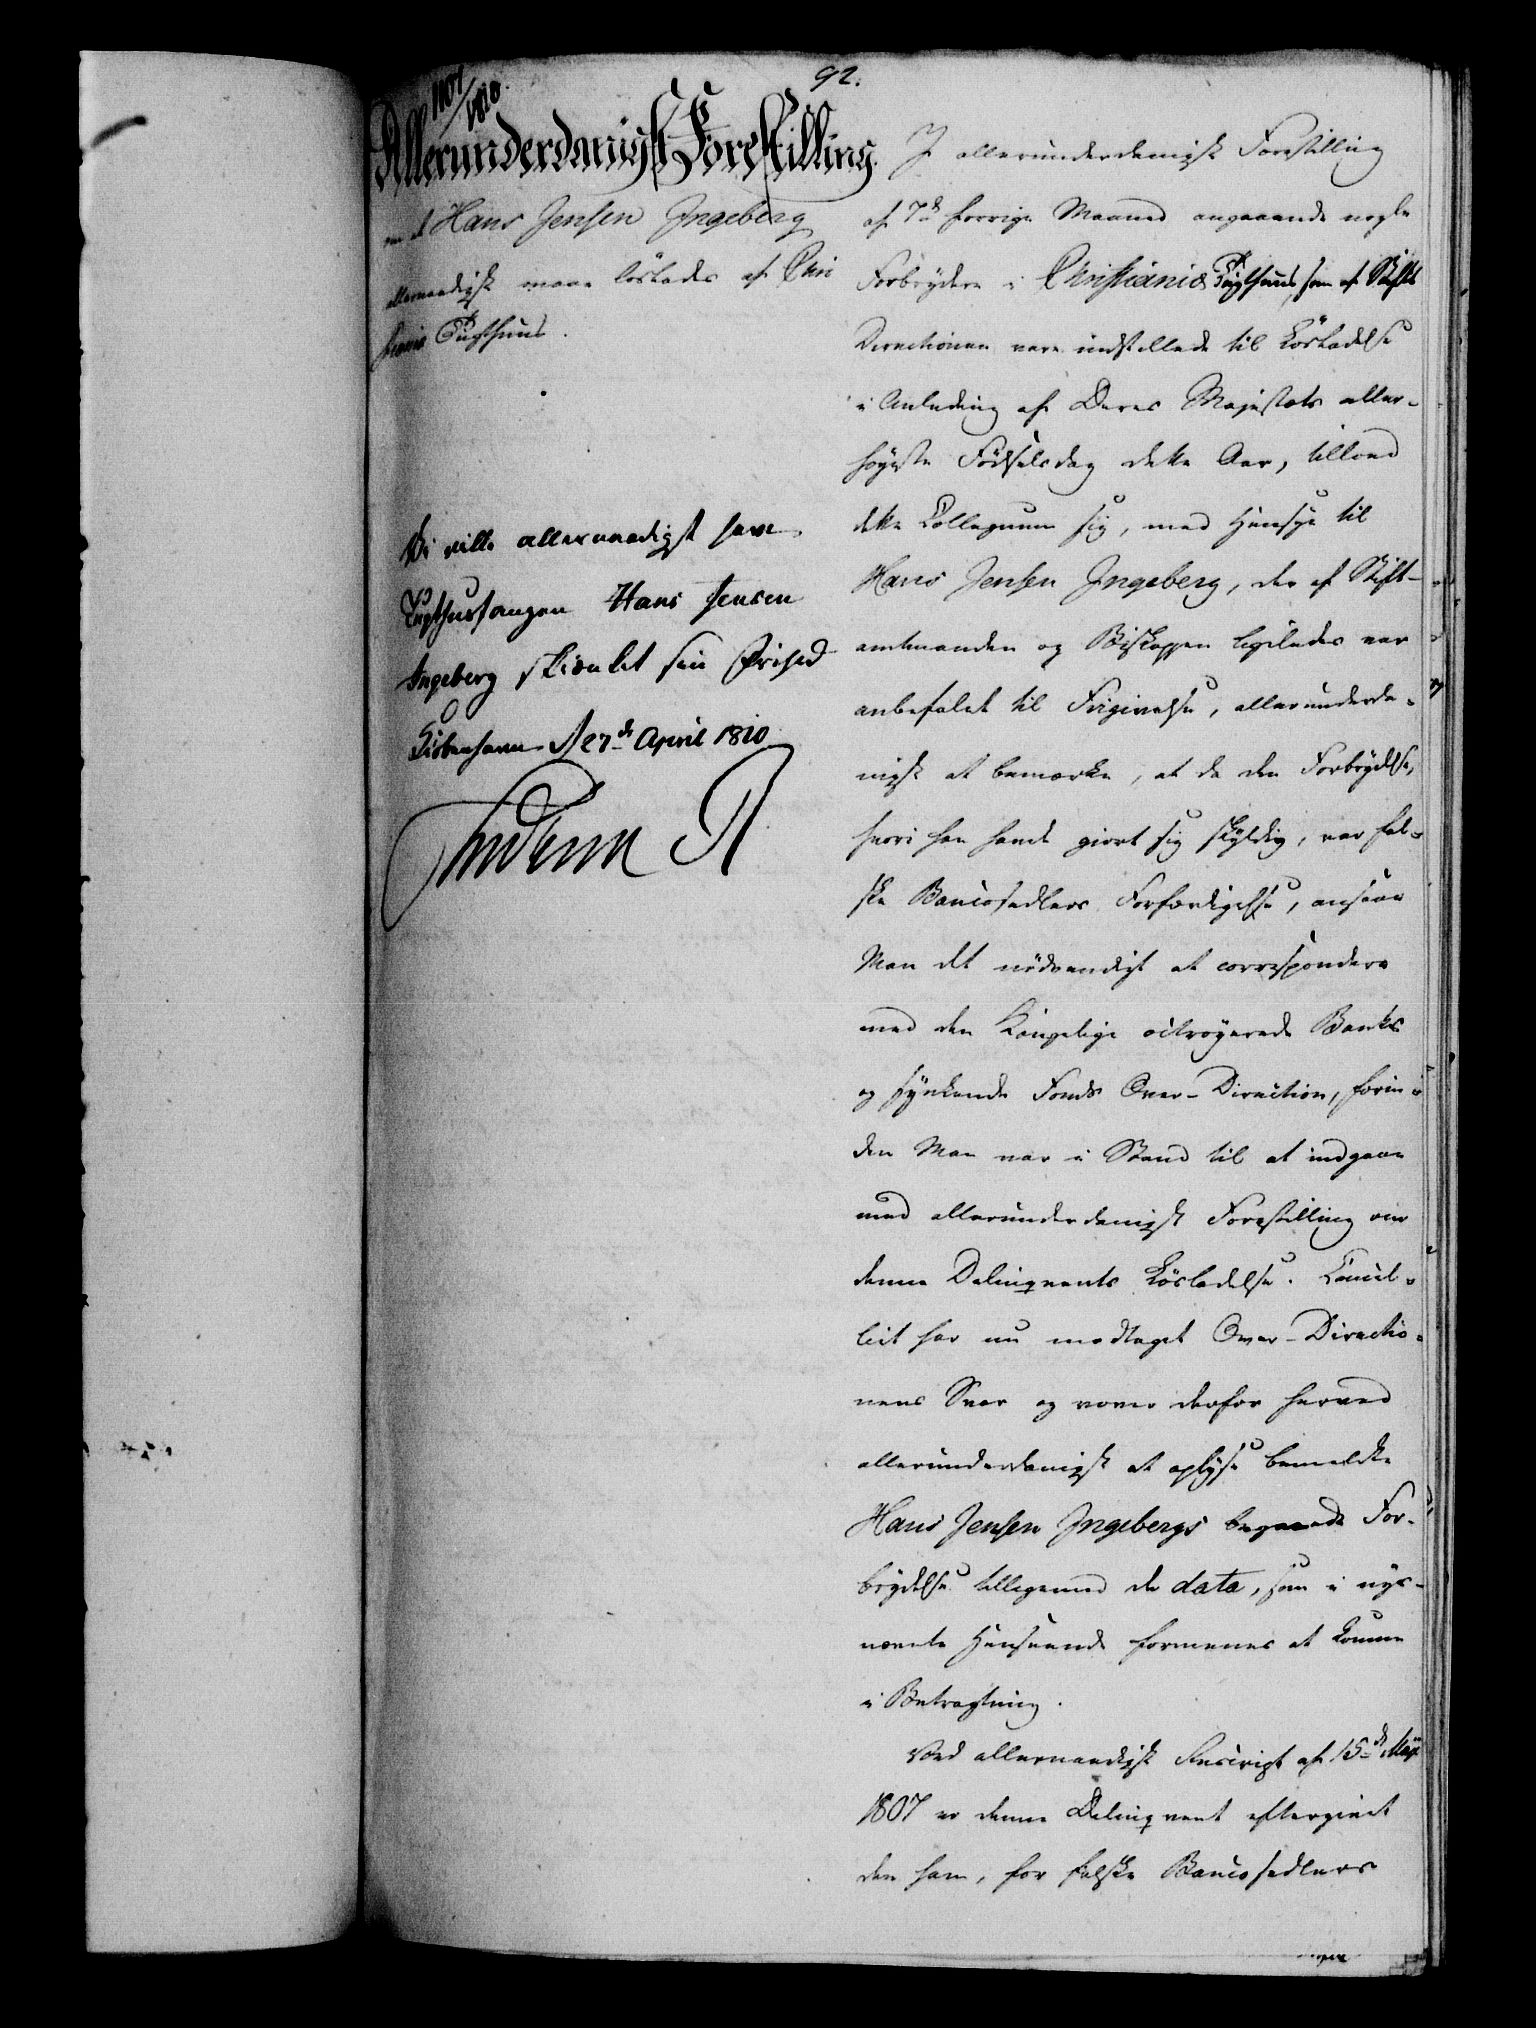 92.
1107/1810.
Allerunderdanigst Forestilling
om at Hans Jensen Ingeberg
allernaadigst maae löslades af Chri
stiania Tugthuus.
Vi ville allernaadigst have
Tugthusfangen Hans Jensen
Ingeberg skienket sin Frihed
Kiöbenhavn d 27de April 1810
Frederik R
I allerunderdanigst Forestilling
af 7de forrige Maaned angaaende nogle
Forbrydere i Christiania Tugthuus, som af Stifts
Directionen vare indstillede til Løsladelse
i Anledning af Deres Majestæts aller-
høyeste Fødselsdag dette Aar, tillod
dette Collegium sig, med Hensyn til
Hans Jensen Ingeberg, der af Stift-
amtmanden og Biskoppen ligeledes var
anbefalet til Frigivelse, allerunderda-
nigst at bemærke, at da den Forbrydelse,
hvori han havde giort sig skyldig, var fal-
ske Bancosedlers Forfærdigelse, ansaae
Man det nødvendigt at correspondere
med den Kongelige octroyerede Banks
og synkende Fonds Over-Direction, forin-
den Man var i Stand til at indgaae
med allerunderdanigst Forestilling om
denne Delinqvents Løsladelse. Cancel-
liet har nu modtaget Over-Directio-
nens Svar og vover derfor herved
allerunderdanigst at oplyse bemeldte
Hans Jensen Ingebergs begaaede For-
brydelse tilligemed de data, som i nys-
nævnte Henseende formenes at komme
i Betragtning.
Ved allernaadigst Rescript af 15de May
1807 er denne Delinqvent eftergivet
den ham, for falske Bancosedlers